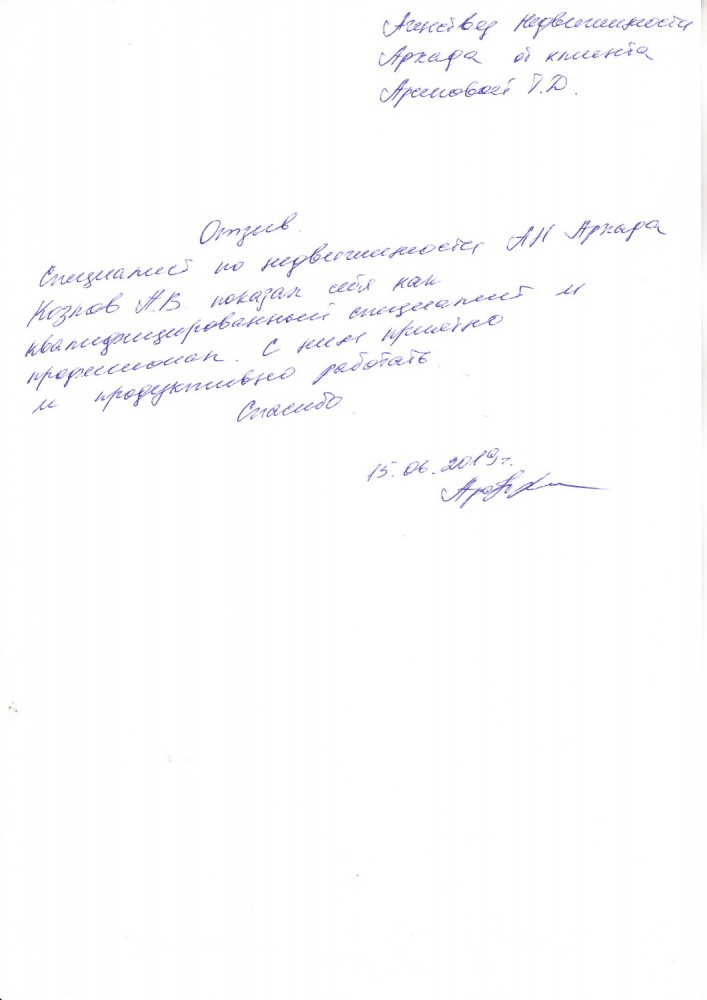 Агенство недвижимости
Аркада от клиента
Т.Д.
Отзыв.
Специалист по недвижимости АН Аркада
Козлов А.В. показал себя как
квалифицированный специалист и
профессионал. С ним приятно
и продуктивно работать.
Спасибо
15.06.2019г.